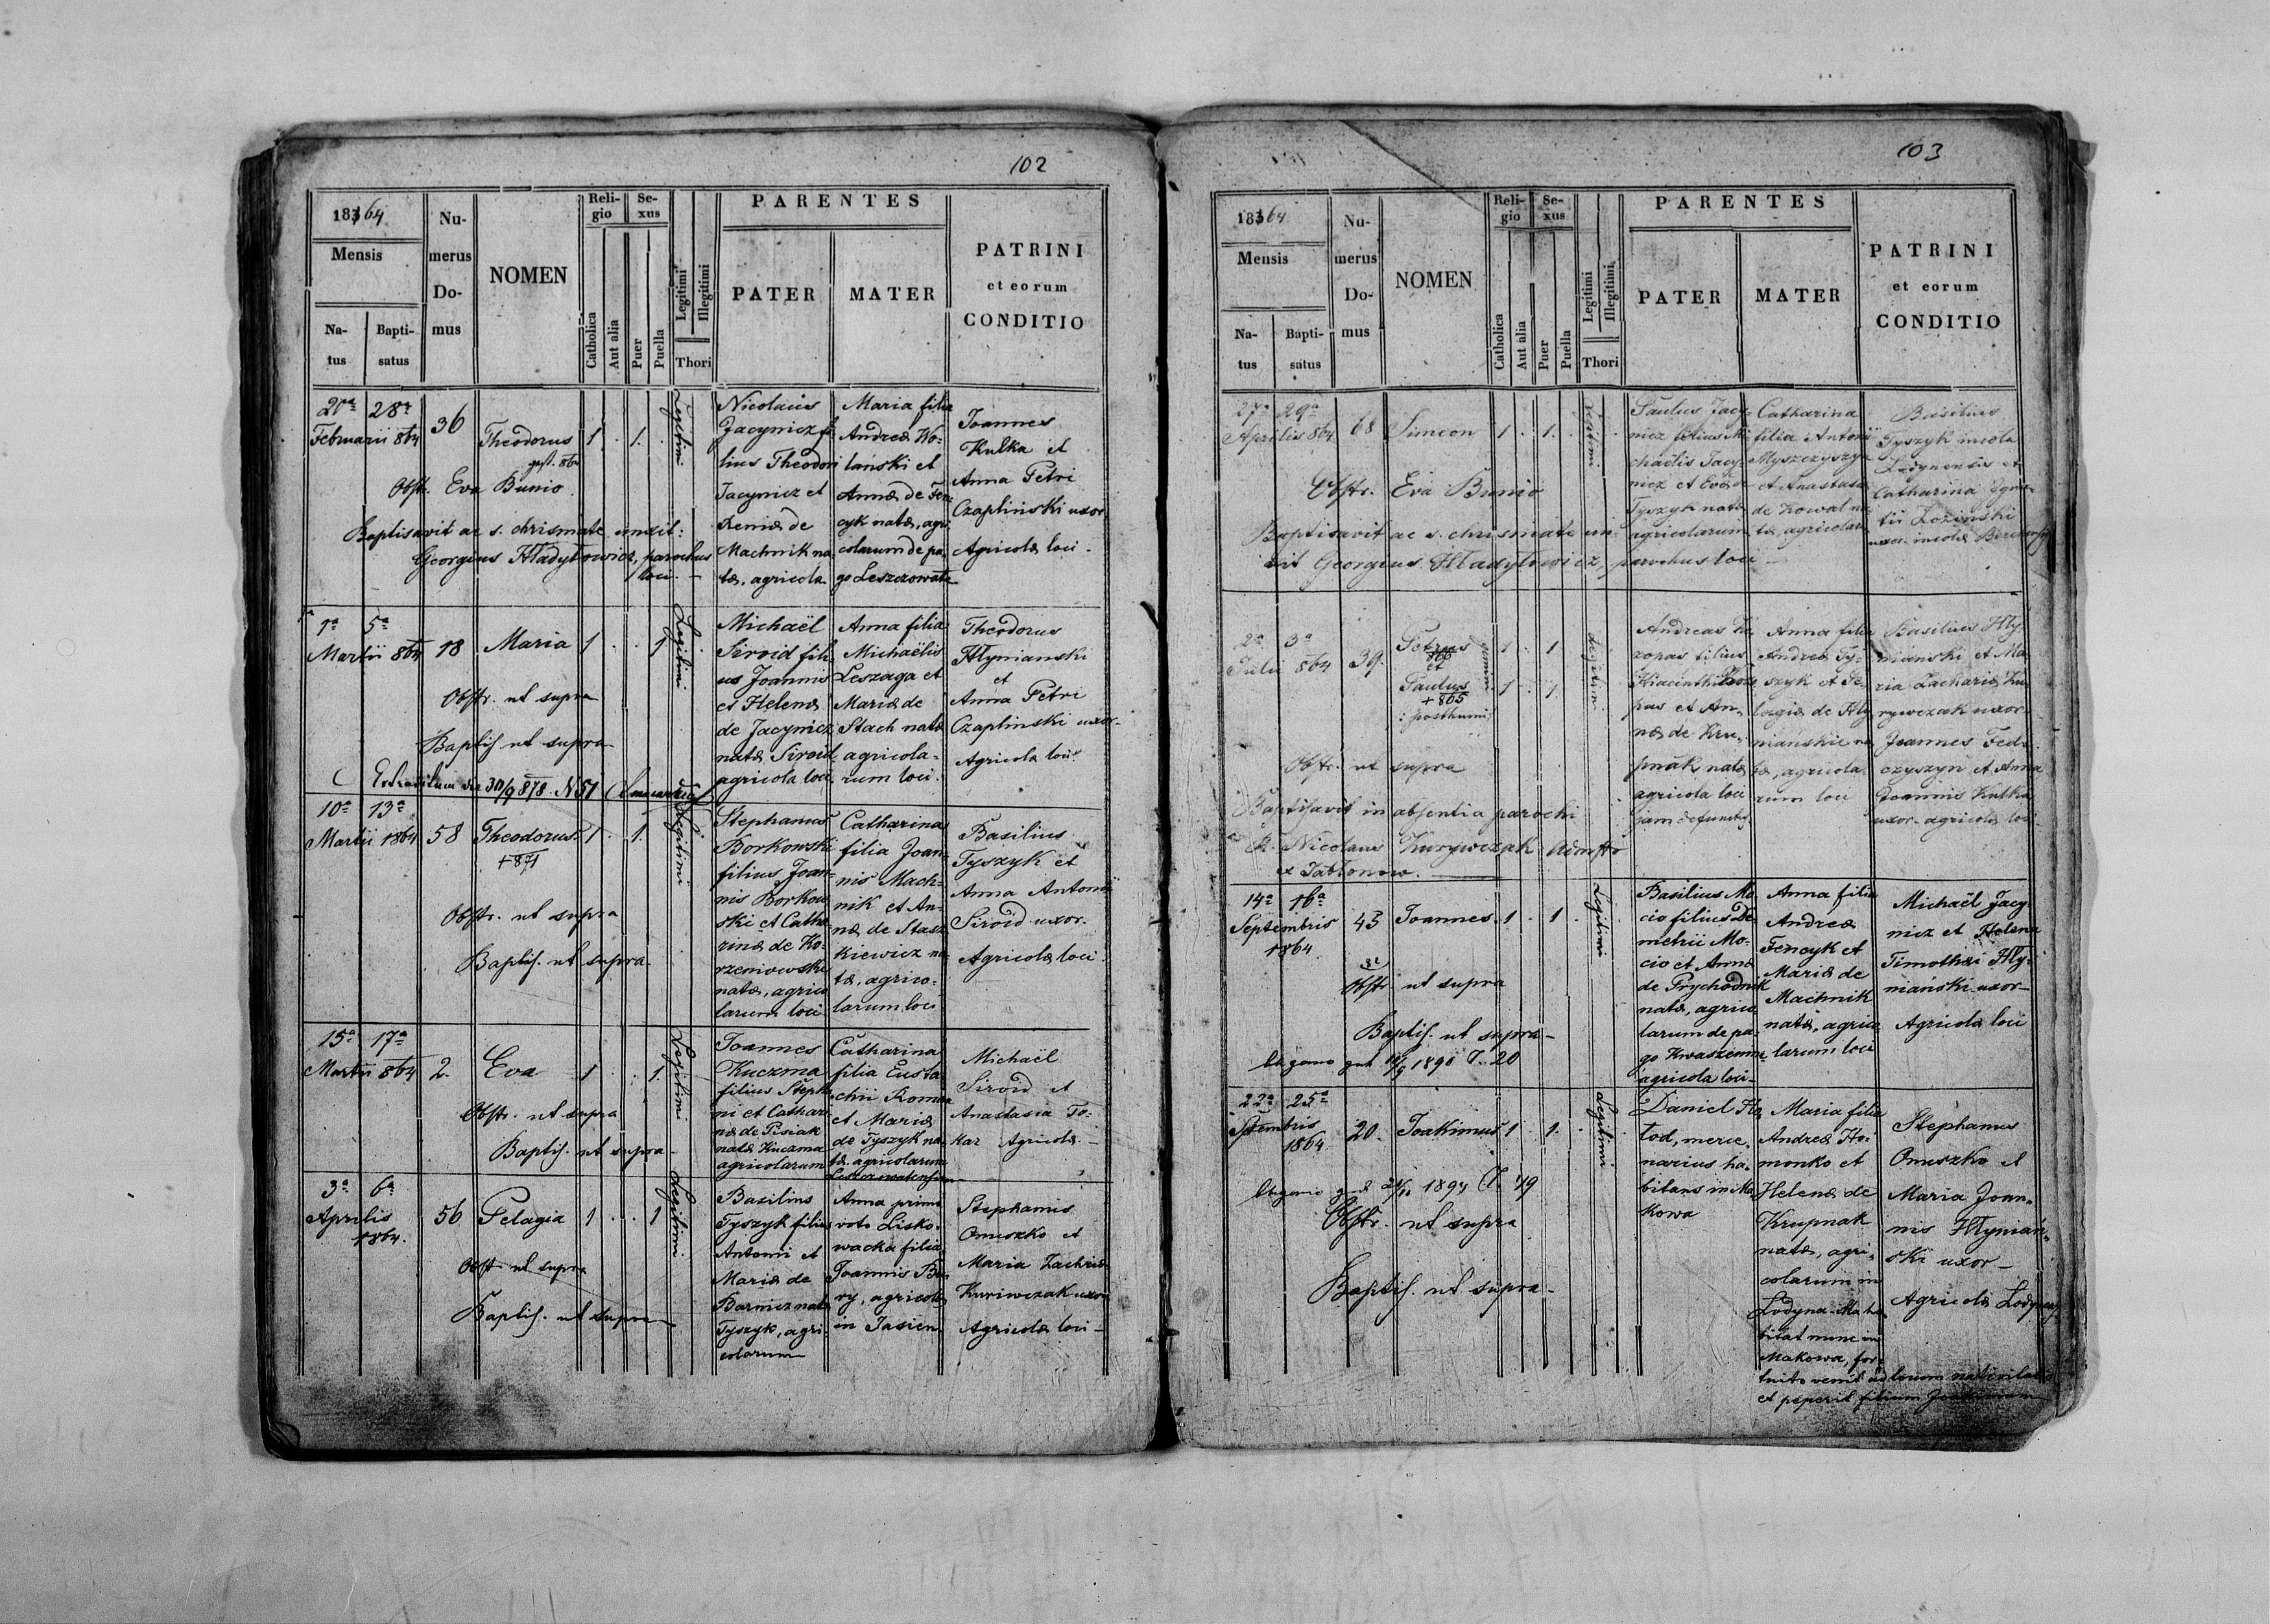 102
1864
Mensis
Na-
tus
Bapti-
satus
Nu-
merus
Do-
mus
NOMEN
Reli-
gio
Catholica
Aut alia
Se-
xus
Puer
Puella
Legitimi
Illegitimi
Thori
PARENTES
PATER
MATER
PATRINI
et eorum
CONDITIO
28a
Februarii 864
36
Theodorus
1 . 1 .
Legitimi
Obstr. Eva Bunio
Baptisavit ac s. chrismate unxit:
Georgius Hładyłowicz, parochus
loci
Nicolaus
Jacynicz fi
lius Theodori
Jacynicz et
Xeniæ de
Machnik na
tæ, agricola
Maria filia
Andreæ Wo-
lański et
Annæ de Fen
cyk natæ, agri
colarum de pa
go Leszczowate
Joannes
Kulka et
Anna Petri
Czapliński uxor
Agricolæ loci
1a 5a
Martii 864
18
Maria
1 . . 1
Legitimi
Obstr. ut supra
Baptis. ut supra
Michaël
Siroid fili-
us Joannis
et Helenæ
de Jacynicz
natæ Siroid
agricola loci
Anna filia
Michaëlis
Leszaga et
Mariæ de
Stach natæ
agricola-
rum loci.
Theodorus
Hłynianski
et
Anna Petri
Czaplinski uxor-
Agricolæ loci
10a 13a
Martii 1864
58
Theodorus
+871
1 . 1.
Legitimi
Obstr. ut supra
Baptis. ut supra
Stephanus
Borkowski
filius Joan-
nis Borkow
ski et Catha
rinæ de Ko-
rzeniowski
natæ, agrico
larum loci
Catharina
filia Joan-
nis Mach-
nik et An-
næ de Stasz
kiewicz na
tæ, agrico-
larum loci
Basilius
Tyszyk et
Anna Antonii
Siroid uxor.
Agricolæ loci
15a 17a
Martii 864
2.
Eva
1 . . 1.
Legitimi
Obstr. ut supra
Baptis. ut supra
Joannes
Kuczma
filius Steph
ni et Cathari
næ de Pisiak
natæ Kuczma
agricolarum
Catharina
filia Eusta
chii Roman
et Mariæ
de Tyszyk na-
tæ agricolarum
Leszczowatensium
Michaël
Siroid et
Anastasia To-
kar Agricolæ.
3a 6a
Aprilis
1864.
56
Pelagia
1 . . 1
Legitimi
Obstr. ut supra
Baptis. ut supra
Basilius
Tyszyk filius
Antonii et
Mariæ de
Barnicz natæ
Tyszyk, agri-
colarum
Anna primo
voto Lisko-
wacka filia
Joannis Bu-
ry, agricolæ
in Jasien
Stephanus
Omeszko et
Maria Zachriæ
Kuriwczak uxor
Agricolæ loci
103
1864
Mensis
Na-
tus
Bapti-
satus
Nu-
merus
Do-
mus
NOMEN
Reli-
gio
Catholica
Aut alia
Se-
xus
Puer
Puella
Legitimi
Illegitimi
Thori
PARENTES
PATER
MATER
PATRINI
et eorum
CONDITIO
27a 29a
Aprilis 864
68
Simeon
1 . 1.
Obstr. Eva Bunio
Baptisavit ac s. chrismate un-
xit Georgius Hładyłowicz, parochus loci
Paulus Jacy-
nicz filius Mi
chaëlis Jacy-
nicz et Evæ de
Tyszyk natæ
agricolarum
Catharina
filia Antonii
Myszczyszyn
et Anastasiæ
de Kowal na
tæ, agricolaru
Basilius
Tyszyk incola
Lodynensis et
Catharina Igna-
tii Łoziński
2a 3a
Julii 864
39.
Petrus
866
et
Paulus
+865
posthumi
1 . 1
1 . 1.
Legitimi
Obstr. ut supra
Baptisavit in absentia parochi
R. Nicolaus Kurywczak
ex Jabłonow.
filius
Hiacinthi
pas et An-
næ de Kru-
pnak natæ
agricola loci
jam defunctus
Anna filia
Andreæ Ty-
szyk et Pe-
lagiæ de Hły
nianskie na
tæ, agricola
rum loci
Basilius Hły-
nianski et Ma
ria Zachariæ Ku
rywczak uxor-
Joannes Fedi
czyszyn et Anna
Joannis Kulka
uxor- agricolæ loci
14a 16a
Septembris
1864
43
Joannes
1 . 1 .
Legitimi
Obstr. ut supra
Baptis. ut supra
1890
Basilius Mo
cio filius De
metrii Mo-
cio et Annæ
de Prychodnik
natæ, agrico
larum de pa-
go Kwaszenina
agricola loci
Anna filia
Andreæ
Fencyk et
Mariæ de
Machnik
natæ, agrico
larum loci
Michaël Jacy-
nicz et Helena
Timothæi Hły-
niański uxor-
Agricolæ loci
22a 25a
Septembris
1864
20.
Joakimus
1 . 1 .
Legitimi
Obstr. ut supra
Baptis. ut supra
Daniel Ho
łod, merce-
narius ha-
bitans in Ma
kowa
Maria filia
Andreæ Ho-
monko et
Helenæ de
Krupnak
natæ, agri-
colarum in
Lodyna. Ma ha
bitat nunc in
Makowa, for-
tuito venit ad locum nativitatis
et peperit filium
Stephanus
Omeszko et
Maria Joan-
nis Hłynian-
ski uxor
Agricolæ